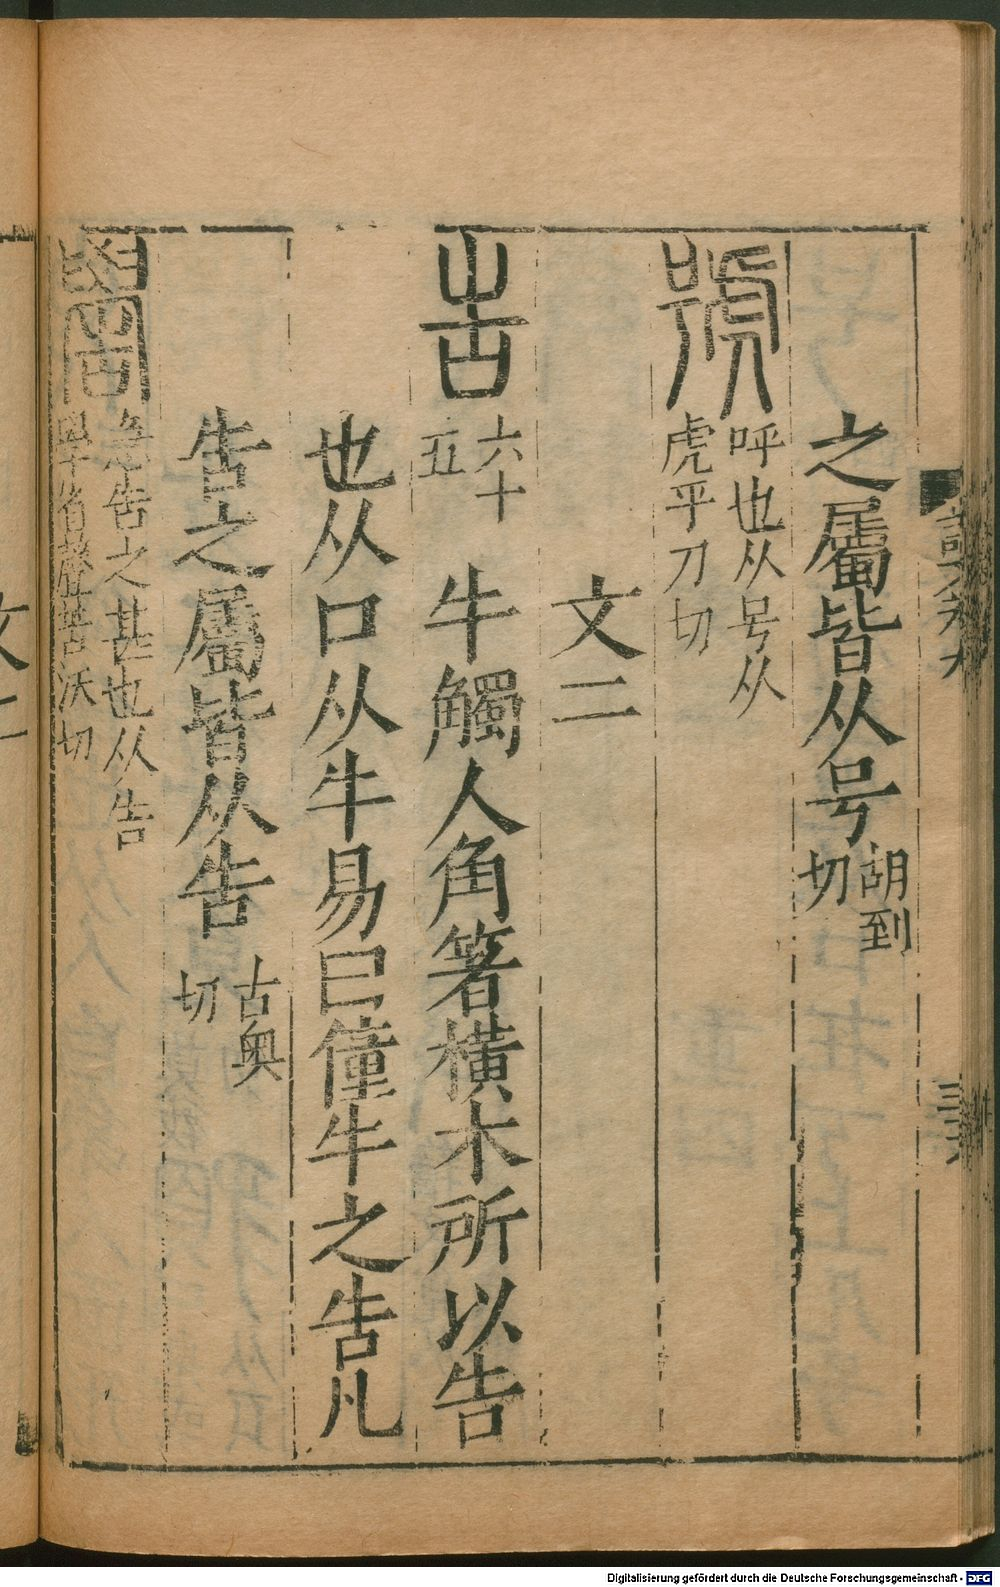 之屬皆从号胡到切
號呼也从号从虎乎刀切
文二
告六十五牛觸人角箸橫木所以告
也从口从牛易曰僮牛之告凡
告之屬皆从告古奧切
嚳急告之甚也从告學省聲苦沃切
Digitalisierung gefördert durch die Deutsche Forschungsgemeinschaft - DFG